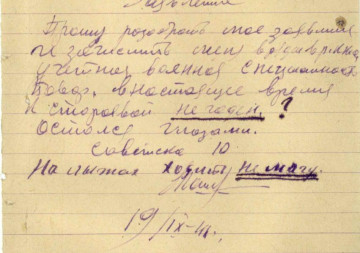 Заявление
Прошу разобрать мое заявление
и зачислить меня
учетная военная специальность
Повар. в настоящее время
к строевой не годен. ?
Остался глазами.
Советска 10
На лыжах ходить не магу.
19/IX-41.